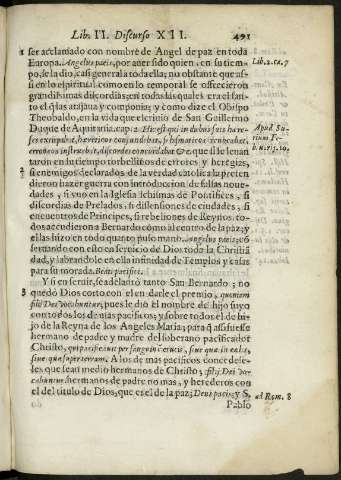 Lib. II. Discurso XII. 491
1 ser aclamado con nombre de Angel de paz en toda
Europa. Angelus pacis, por auer sido quien, en su tiem-
po, se la dio, casi general a toda ella; no obstante que as-
si en lo espiritual como en lo temporal se ofrecieron
grandissimas discordias; en todas las quales era el fau-
to el q las atajaua y componia; y como dize el Obispo
Theobaldo, en la vida que escriuio de San Guillermo
Duque de Aquitania, cap. 2. Hic est qui in dubijs suis here-
ses extirpabat, hereticos confundebat, schismaticos reuocabat,
erroneos instruebat, discordes concordabat &c. que si se leuan
taron en su tiempo torbellinos de errores y heregias,
2 si enemigos declarados de la verdad catolica la preten
dieron hazer guerra con introducion de falsas noue-
dades, si vuo en la Iglesia schismas de Pontifices, si
discordias de Prelados, si dissensiones de ciudades, si
encuentros de Principes, si rebeliones de Reynos, to-
dos acudieron a Bernardo como al centro de la paz; y
el las hizo en todo quanto puso mano. Angelus pacis; co
siruiendo con esto a
seruicio de Dios toda la Christia
dad, y labrandole en ella infinidad de Templos y casas
para su morada. Beati pacifici.
Y si en seruir, se adelantò tanto San Bernardo; no
3 quedò Dios corto con el en darle el premio, quoniam
filij Dei vocabuntur, pues le diò el nombre de hijo suyo
con todos los demas pacificos; y sobre todos el de hi-
jo de la Reyna de los Angeles Maria; para q assi fuesse
hermano de padre y madre del soberano pacificador
Christo, qui pacificauit per sanguinẽ crucis, siue quæ in cælis,
siue quæ super terram. A los de mas pacificos concedese-
les que sean medio hermanos de Christo; filij Dei vo-
cabuntur hermanos de padre no mas, y herederos con
el del titulo de Dios, que es el de la paz; Deus pacis; y S.
Pablo
Lib. 2. ca. 7
Apud Su-
rium To.
ad Rom. 8